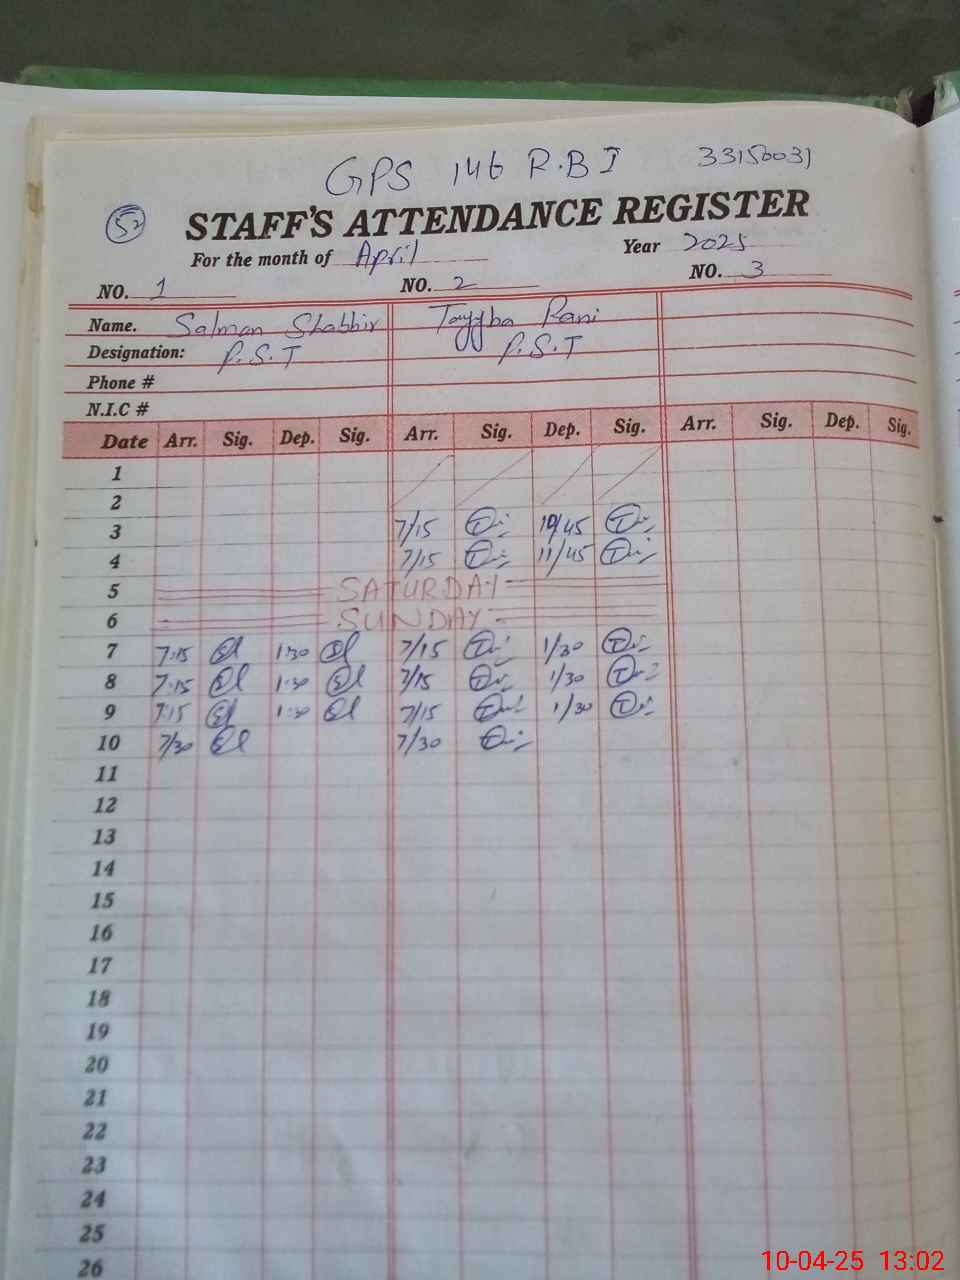 GPS 146 R.B I 33150031
52
STAFF'S ATTENDANCE REGISTER
For the month of April Year 2025
NO. 1 NO. 2 NO. 3
Name. Salman Shabbir Tayyba Rani
Designation: P.S.T P.S.T
Phone #
N.I.C #
Date Arr. Sig. Dep. Sig. Arr. Sig. Dep. Sig. Arr. Sig. Dep. Sig.
1
2
3 7/15 10/45
4 7/15 11/45
5 SATURDAY
6 SUNDAY
7 7:15 1:30 7/15 1/30
8 7:15 1:30 7/15 1/30
9 7:15 1:30 7/15 1/30
10 7/30 7/30
11
12
13
14
15
16
17
18
19
20
21
22
23
24
25
26
10-04-25 13:02